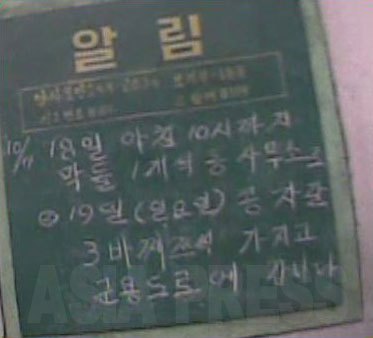 알림
10/11 18일 아침 10시까지
막돌 1개씩 동 사무소로
19일 (일요일) 공차판
3바께쯔씩 가지고
군용도로에 갑니다
ASIA PRESS